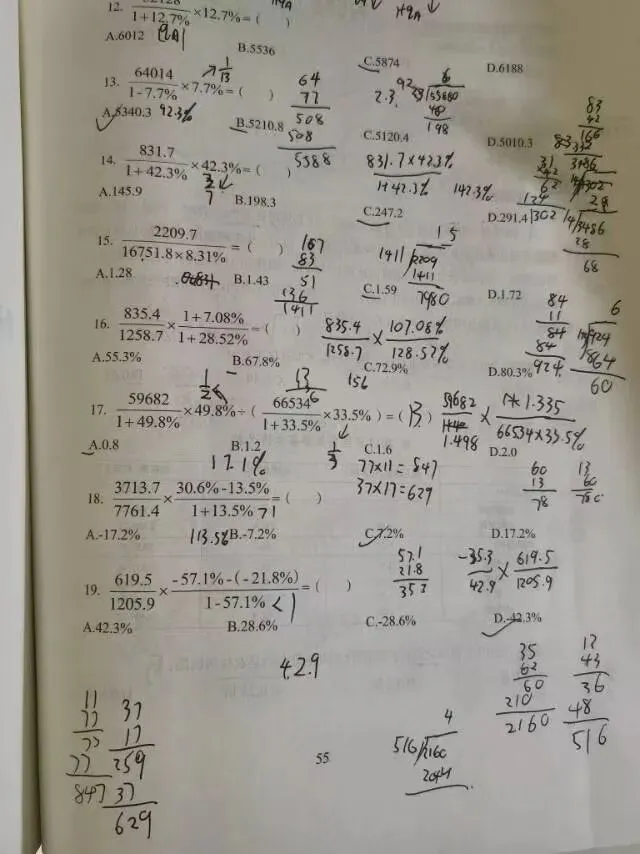 12. 52128/(1+12.7%)×12.7%=( )
A.6012 B.5536 C.5874 D.6188
13. 64014/(1-7.7%)×7.7%=( ) 1/13
64
77
508
508
5588
A.5340.3 92.3% B.5210.8 C.5120.4 D.5010.3
14. 831.7/(1+42.3%)×42.3%=( ) 831.7×42.3%/1+42.3% 142.3%
A.145.9 B.198.3 C.247.2 D.291.4
15. 2209.7/(16751.8×8.31%)=( )
167
83
51
136
1411
15
1411 2209
1411
7980
A.1.28 B.1.43 C.1.59 D.1.72
16. 835.4/1258.7×(1+7.08%)/(1+28.52%)=( ) 835.4/1258.7×107.08%/128.52%
84
11
84
84
924
A.55.3% B.67.8% C.72.9% D.80.3%
1/2 13 156
17. 59682/(1+49.8%)×49.8%÷(66534/(1+33.5%)×33.5%)=( ) 59682/1.498 × 1.335/66534×33.5%
A.0.8 B.1.2 C.1.6 D.2.0
17.1% 1/3 77×11=847
37×17=629
60
13
78
13
60
780
18. 3713.7/7761.4×(30.6%-13.5%)/(1+13.5%)=( )
A.-17.2% 113.5% B.-7.2% C.7.2% D.17.2%
57.1
21.8
35.3
-35.3/42.9×619.5/1205.9
19. 619.5/1205.9×(-57.1%-(-21.8%))/(1-57.1%)=( ) <1
A.42.3% B.28.6% C.-28.6% D.-42.3%
42.9
35
62
60
210
2160
12
43
36
48
516
11
77
77
77
847
37
17
259
37
629
4
516 2160
55